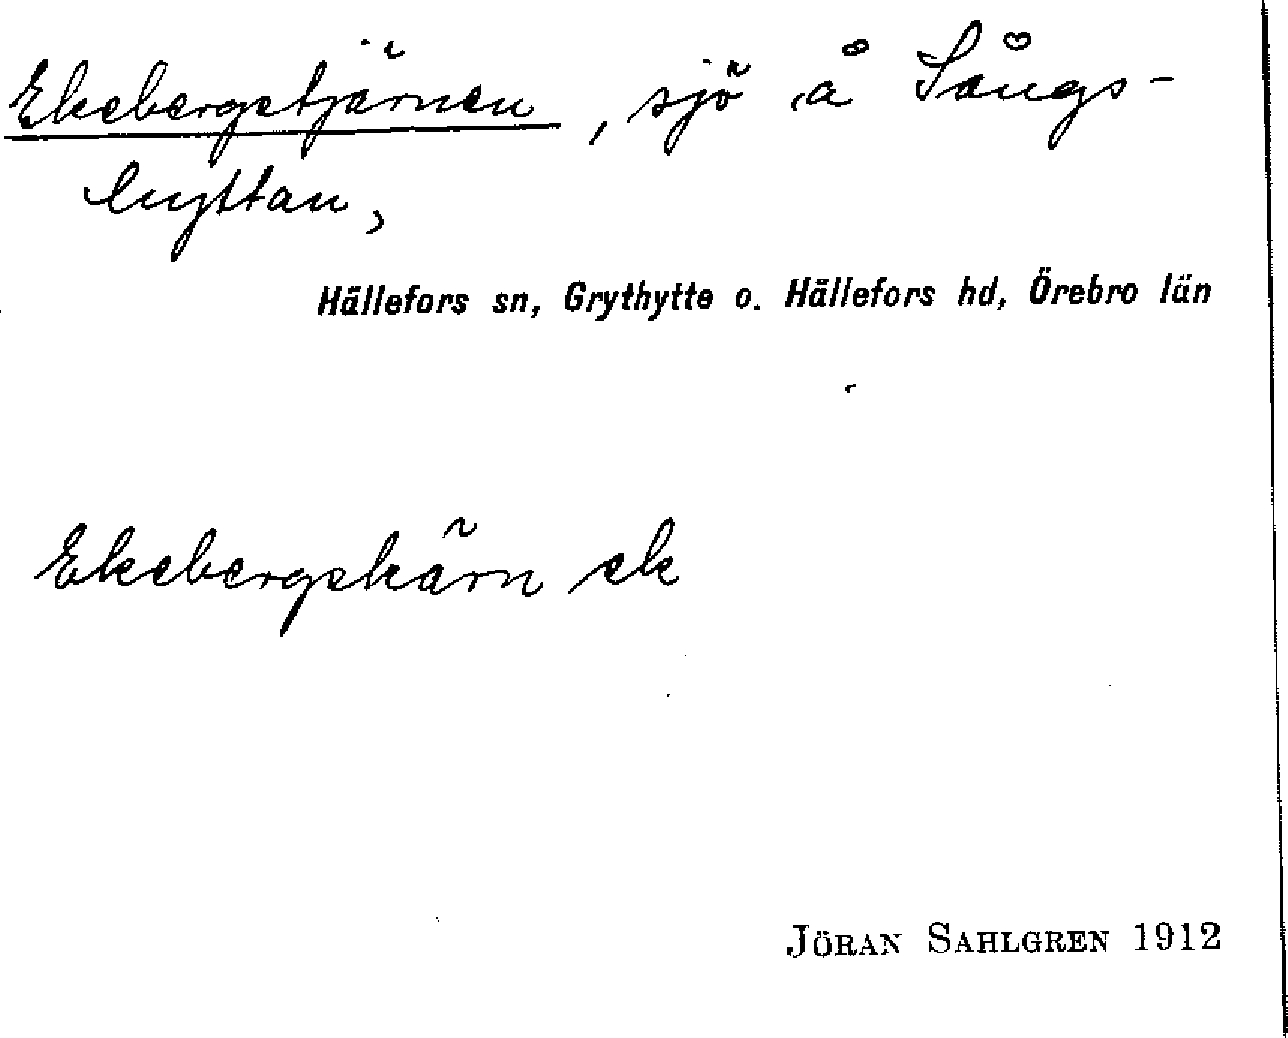 Ekebergstjärnen, sjö å Sångs-
huyttan,
Hällefors sn, Grythytte o. Hällefors hd, Örebro län
Ekebergskärn ek
JÖRAN SAHLGREN 1912